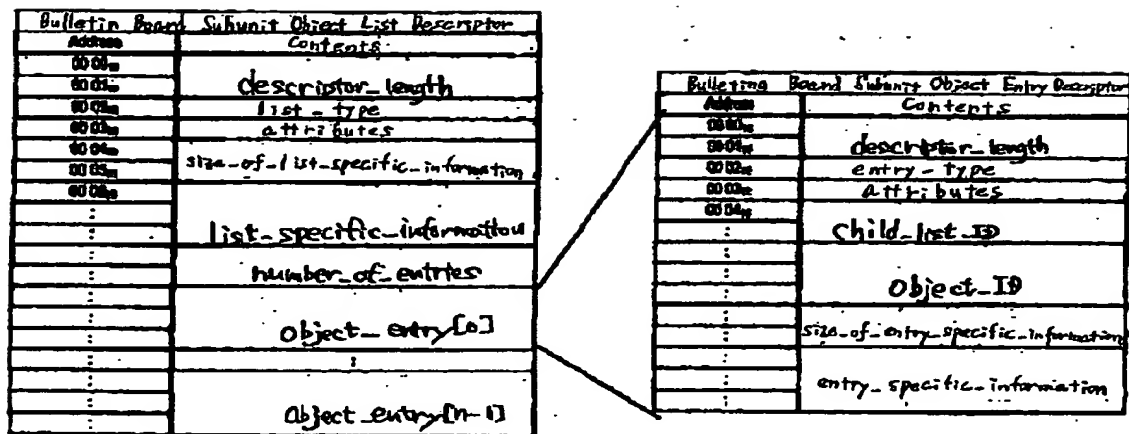 Bulletin Board Subunit Object List Descriptor
Address Contents
00 00₁₆
00 01₁₆ descriptor_length
00 02₁₆ list_type
00 03₁₆ attributes
00 04₁₆
00 05₁₆ size_of_list_specific_information
00 06₁₆
:
: list_specific_information
:
: number_of_entries
:
: object_entry[0]
:
: :
:
: object_entry[n-1]
:
Bulleting Board Subunit Object Entry Descriptor
Address Contents
00 00₁₆
00 01₁₆ descriptor_length
00 02₁₆ entry_type
00 03₁₆ attributes
00 04₁₆
: child_list_ID
:
: object_ID
:
: size_of_entry_specific_information
:
: entry_specific_information
: